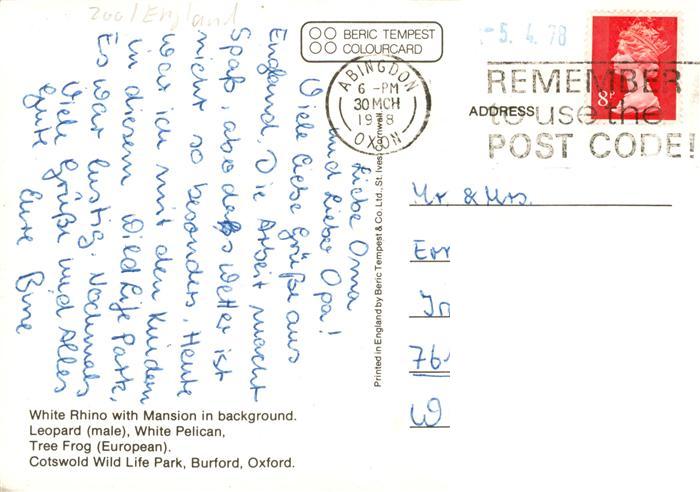 Zoo / England
BERIC TEMPEST
COLOURCARD
-5. 4. 78
ABINGDON
6 -PM
30 MCH
1978
OXON
REMEMBER
to use the
POST CODE!
8P
ADDRESS
Liebe Oma
und lieber Opa!
Viele liebe Grüße aus
England. Die Arbeit macht
Spaß, abo daß Wetter ist
nicht so besonders. Heute
war ich mit den Kindern
in diesem Wild Life Park,
Es war lustig. Nochmals
Viele Grüße und Alles
Gute Eure Bine
Printed in England by Beric Tempest & Co. Ltd., St. Ives, Cornwall
Mr. & Mrs.
Err
In
76
W
White Rhino with Mansion in background.
Leopard (male), White Pelican,
Tree Frog (European).
Cotswold Wild Life Park, Burford, Oxford.